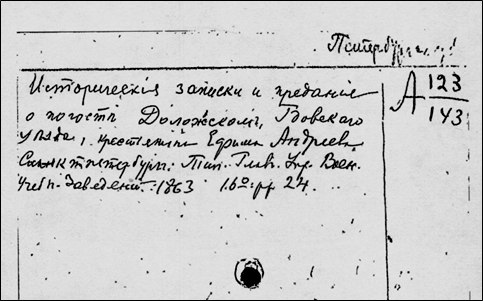 Петербургск
Историческія записки и преданіе
А 123
143
о погостѣ Доложскомъ, Гдовскаго
уѣзда, крестьянина Ефима Андреева.
Санктпетербург. Тип. Глав. Упр. Воен.
Учебн. Заведеній. 1863 16º. pp 24.